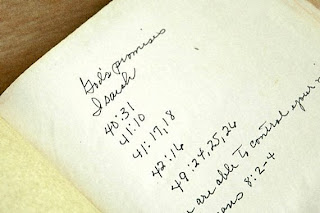 God's promises
Isaiah
40:31
41:10
41:17,18
42:16
49:24,25,26
are able to control your
8:2-4